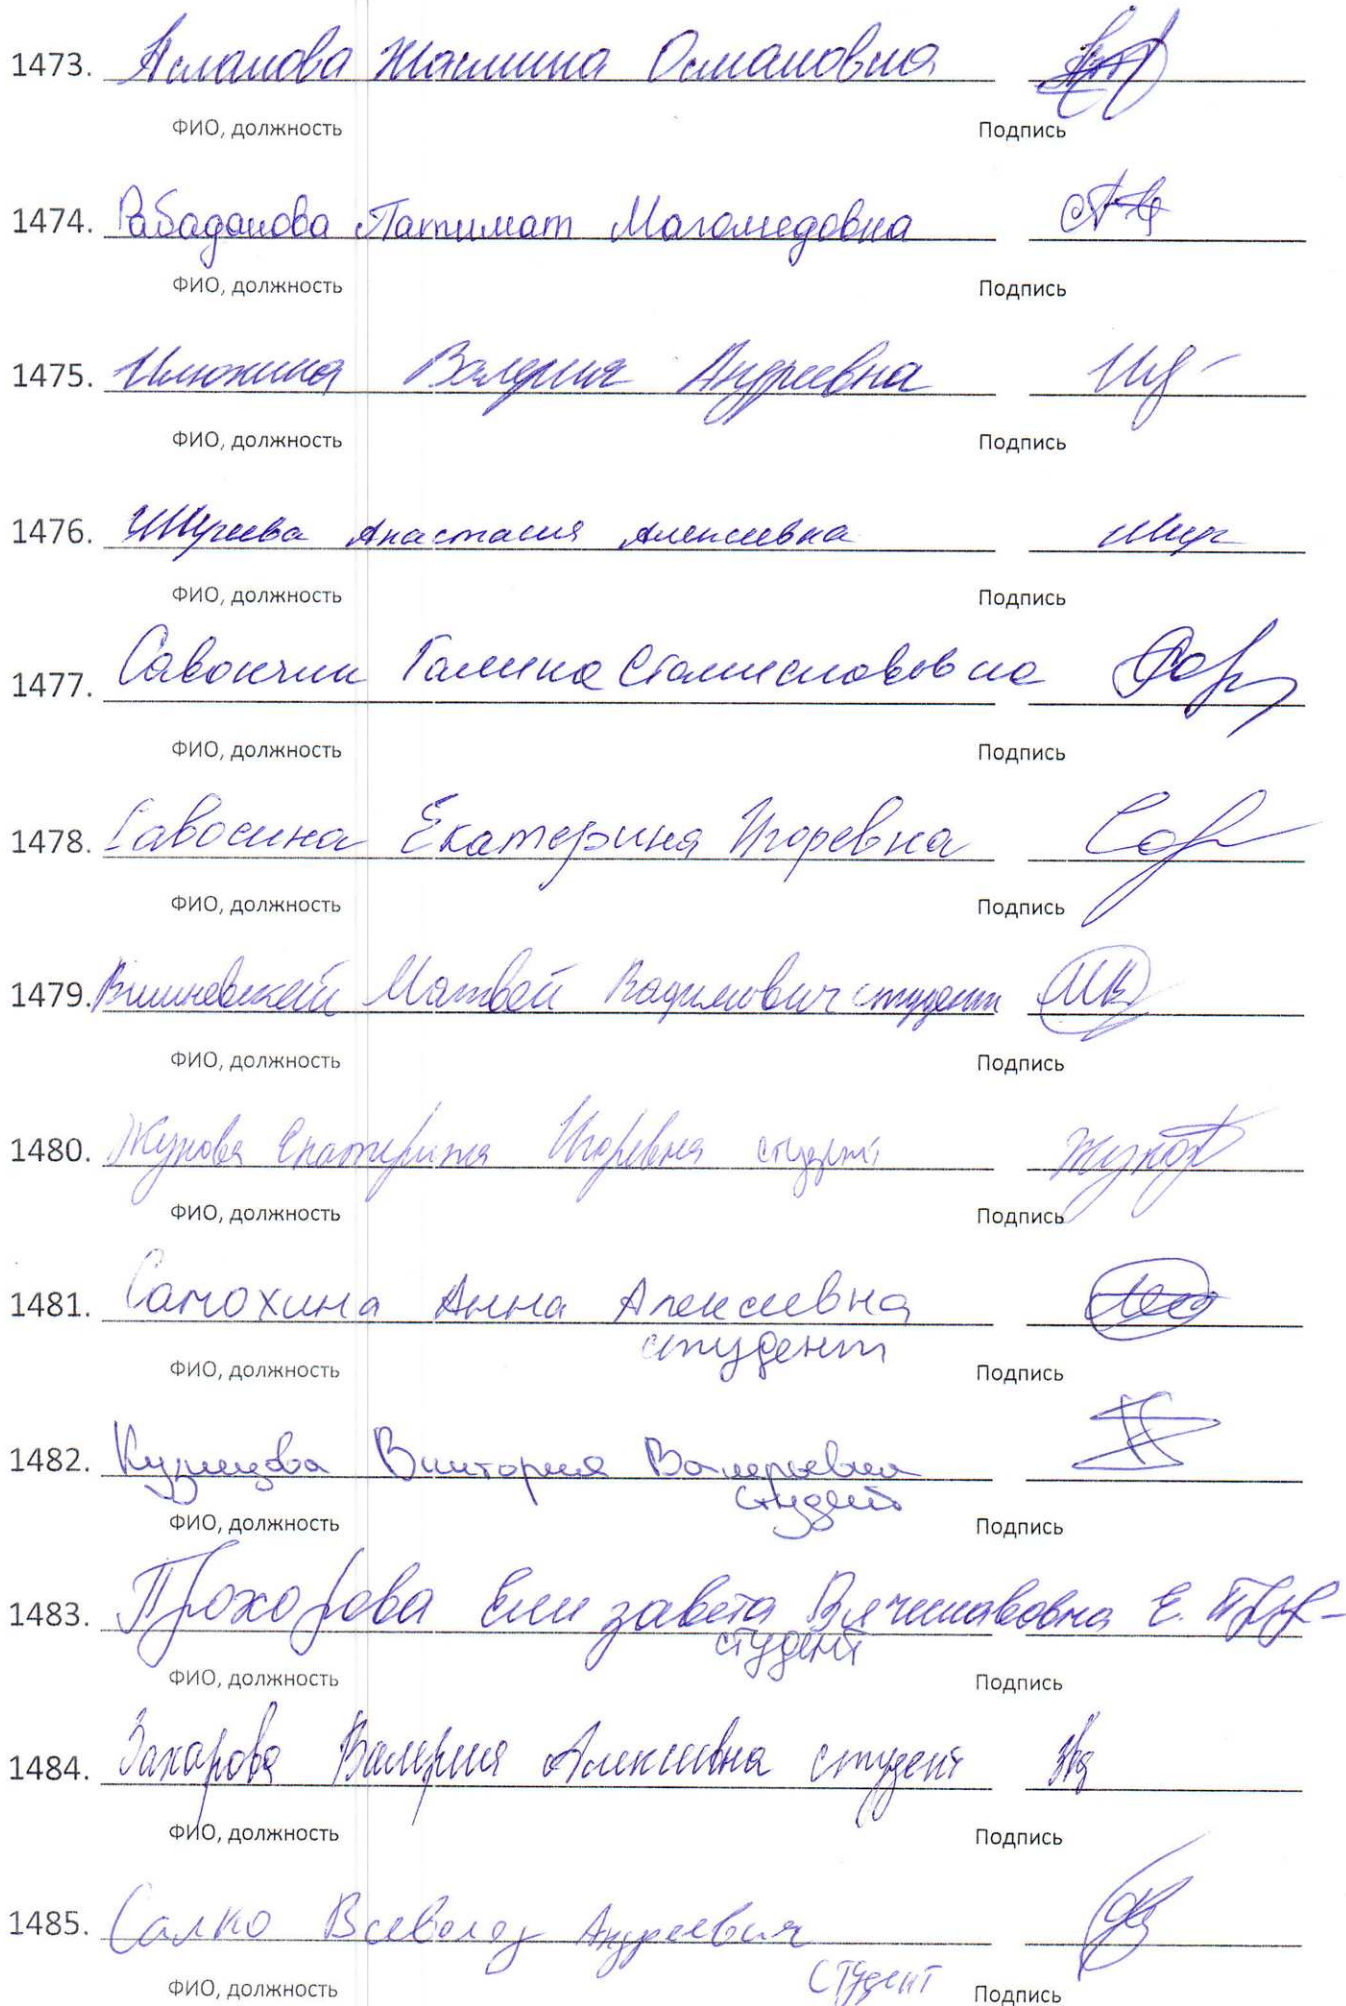 1473. Асланова Жасмина Османовна
ФИО, должность Подпись
1474. Рабаданова Патимат Магомедовна
ФИО, должность Подпись
1475. Илюхина Валерия Андреевна
ФИО, должность Подпись
1476. Анастасия Алексеевна
ФИО, должность Подпись
1477. Галина Станиславовна
ФИО, должность Подпись
1478. Савосина Екатерина Игоревна
ФИО, должность Подпись
1479. Вишневский Матвей Вадимович студент
ФИО, должность Подпись
1480. Жукова Екатерина Игоревна студент
ФИО, должность Подпись
1481. Самохина Анна Алексеевна
студент
ФИО, должность Подпись
1482. Кузнецова Виктория Валерьевна
студент
ФИО, должность Подпись
1483. Прохорова Елизавета Вячеславовна Е.
студент
ФИО, должность Подпись
1484. Захарова Валерия Алексеевна студент
ФИО, должность Подпись
1485. Салко Всеволод Андреевич
студент
ФИО, должность Подпись